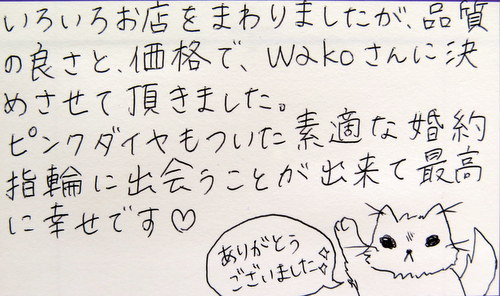 いろいろお店をまわりましたが、品質
の良さと、価格で、wakoさんに決
めさせて頂きました。
ピンクダイヤもついた素適な婚約
指輪に出会うことが出来て最高
に幸せです♡
ありがとう
ございました